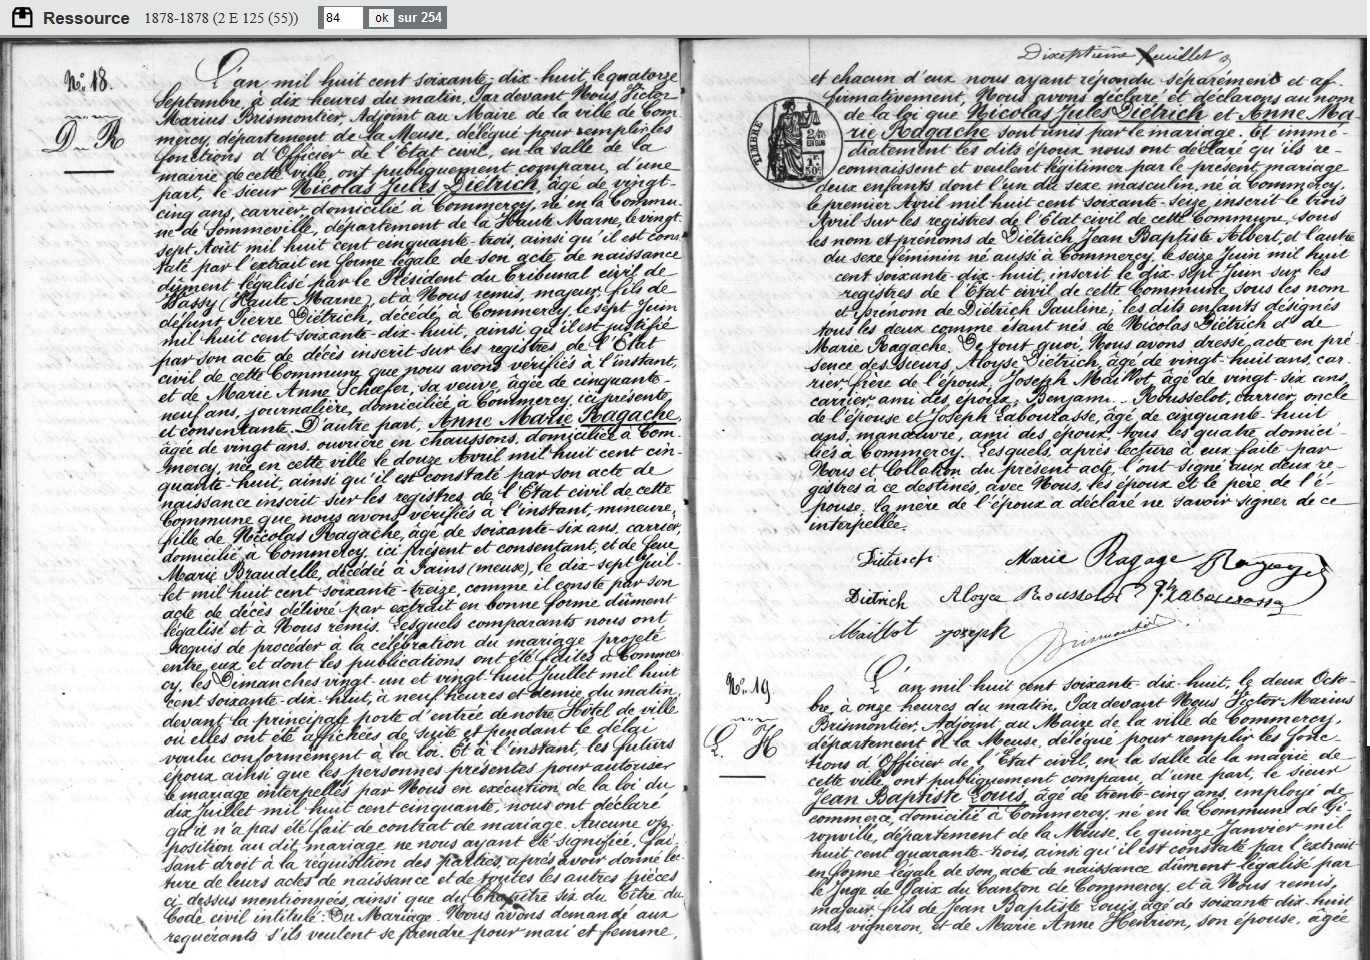 Ressource 1878-1878 (2 E 125 (55)) 84 ok sur 254
N° 18.
D R
L'an mil huit cent soixante-dix-huit le quatorze
Septembre, à dix heures du matin, Par devant Nous Victor
Marius Brismontier, Adjoint au Maire de la ville de Com-
mercy, département de la Meuse, délégué pour remplir les
fonctions d'Officier de l'Etat civil, en la salle de la
mairie de cette ville, ont publiquement comparu, d'une
part, le sieur Nicolas Jules Diétrich, âgé de vingt-
cinq ans, carrier, domicilié à Commercy, né en la Commu-
ne de Sommeville, département de la Haute Marne, le vingt
sept Août mil huit cent cinquante-trois, ainsi qu'il est cons-
taté par l'extrait en forme légale de son acte de naissance
dûment légalisé par le Président du Tribunal civil de
Vassy (Haute Marne), et à Nous remis, majeur, fils de
défunt Pierre Diétrich, décédé à Commercy, le sept Juin
mil huit cent soixante-dix-huit, ainsi qu'il est justifié
par son acte de décès inscrit sur les registres de l'Etat
civil de cette Commune que nous avons vérifiés à l'instant,
et de Marie Anne Schaefer, sa veuve, âgée de cinquante-
neuf ans, journalière, domiciliée à Commercy, ici présente
et consentante. D'autre part, Anne Marie Ragache,
âgée de vingt ans, ouvrière en chaussons, domiciliée à Com-
mercy, née en cette ville le douze Avril mil huit cent cin-
quante-huit, ainsi qu'il est constaté par son acte de
naissance inscrit sur les registres de l'Etat civil de cette
Commune que nous avons vérifiés à l'instant, mineure,
fille de Nicolas Ragache, âgé de soixante-six ans, carrier,
domicilié à Commercy, ici présent et consentant, et de feue
Marie Braudelle, décédée à Fains (meuse), le dix-sept Juil-
let mil huit cent soixante-treize, comme il conste par son
acte de décès délivré par extrait en bonne forme dûment
légalisé et à Nous remis. Lesquels comparants nous ont
requis de procéder à la célébration du mariage projeté
entre eux et dont les publications ont été faites à Commer-
cy, les Dimanches vingt-un et vingt-huit Juillet mil huit
cent soixante-dix-huit, à neuf heures et demie du matin,
devant la principale porte d'entrée de notre Hôtel de ville
où elles ont été affichées de suite et pendant le délai
voulu conformément à la loi. Et à l'instant, les futurs
époux ainsi que les personnes présentes pour autoriser
le mariage interpellés par Nous en exécution de la loi du
dix Juillet mil huit cent cinquante, nous ont déclaré
qu'il n'a pas été fait de contrat de mariage. Aucune op-
position au dit mariage ne nous ayant été signifiée, fai-
sant droit à la requisition des parties, après avoir donné lec-
ture de leurs actes de naissance et de toutes les autres pièces
ci-dessus mentionnées, ainsi que du Chapitre six du Titre du
Code civil intitulé: Du Mariage. Nous avons demandé aux
requérants s'ils veulent se prendre pour mari et femme,
Dixseptième feuillet
et chacun d'eux nous ayant répondu séparément et af-
firmativement, Nous avons déclaré et déclarons au nom
de la loi que Nicolas Jules Diétrich et Anne Ma-
rie Ragache sont unis par le mariage. Et immé-
diatement les dits époux nous ont déclaré qu'ils re-
connaissent et veulent légitimer par le présent mariage
deux enfants dont l'un du sexe masculin, né à Commercy,
le premier Avril mil huit cent soixante-seize, inscrit le trois
Avril sur les registres de l'Etat civil de cette Commune, sous
les nom et prénoms de Diétrich, Jean Baptiste Albert, et l'autre
du sexe féminin né aussi à Commercy, le seize Juin mil huit
cent soixante-dix-huit, inscrit le dix-sept Juin sur les
registres de l'Etat civil de cette Commune sous les nom
et prénom de Diétrich Pauline; les dits enfants désignés
tous les deux comme étant nés de Nicolas Diétrich et de
Marie Ragache. De tout quoi, Nous avons dressé acte en pré-
sence des Sieurs, Aloyse Diétrich, âgé de vingt-huit ans, car-
rier, frère de l'époux, Joseph Maillot, âgé de vingt-six ans,
carrier, ami des époux, Benjamin Rousselot, carrier, oncle
de l'épouse et Joseph Labourasse, âgé de cinquante-huit
ans, manœuvre, ami des époux, tous les quatre domici-
liés à Commercy. Lesquels, après lecture à eux faite par
Nous et Collation du présent acte, l'ont signé aux deux re-
gistres à ce destinés, avec Nous, les époux et le père de l'é-
pouse, la mère de l'époux a déclaré ne savoir signer de ce
interpellée.
TIMBRE
Marie Ragage
Dietrich Aloyce Rousselot Labourasse
Maillot joseph Brismontier
N° 19.
L H
L'an mil huit cent soixante-dix-huit, le deux Octo-
bre, à onze heures du matin, Par devant Nous Victor Marius
Brismontier, Adjoint au Maire de la ville de Commercy,
département de la Meuse, délégué pour remplir les fonc-
tions d'Officier de l'Etat civil, en la salle de la mairie de
cette ville, ont publiquement comparu, d'une part, le sieur
Jean Baptiste Louis, âgé de trente-cinq ans, employé de
commerce, domicilié à Commercy, né en la Commune de Gi-
ronville, département de la Meuse, le quinze Janvier mil
huit cent quarante-trois, ainsi qu'il est constaté par l'extrait
en forme légale de son acte de naissance dûment légalisé par
le Juge de Paix du Canton de Commercy, et à Nous remis,
majeur, fils de Jean Baptiste Louis, âgé de soixante-dix-huit
ans, vigneron, et de Marie Anne Henrion, son épouse, âgée